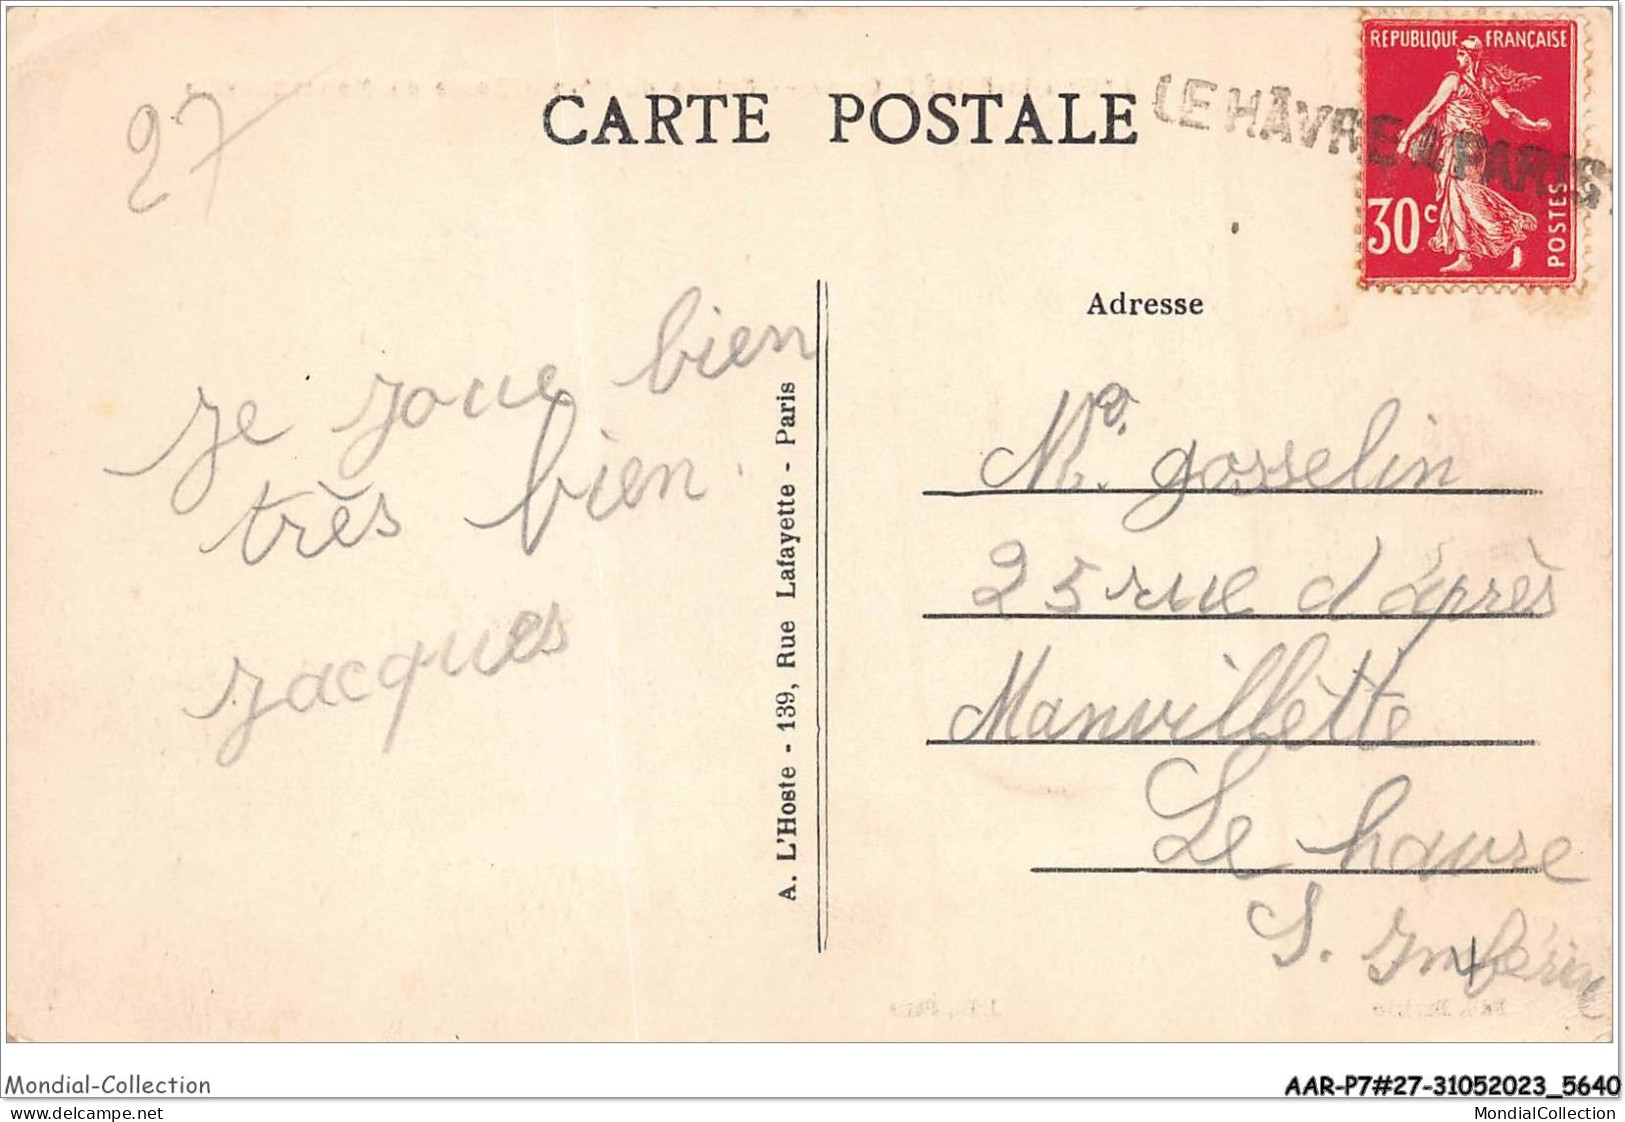 27
CARTE POSTALE
LE HÂVRE A PARIS
REPUBLIQUE FRANÇAISE
30c
POSTES
Adresse
je joue bien
très bien.
jacques
A. L'Hoste - 139, Rue Lafayette - Paris
gosselin
25 rue d'après
Manvillette
Le havre
S. Inférieu
Mondial-Collection
AAR-P7#27-31052023_5640
delcampe.net
MondialCollection